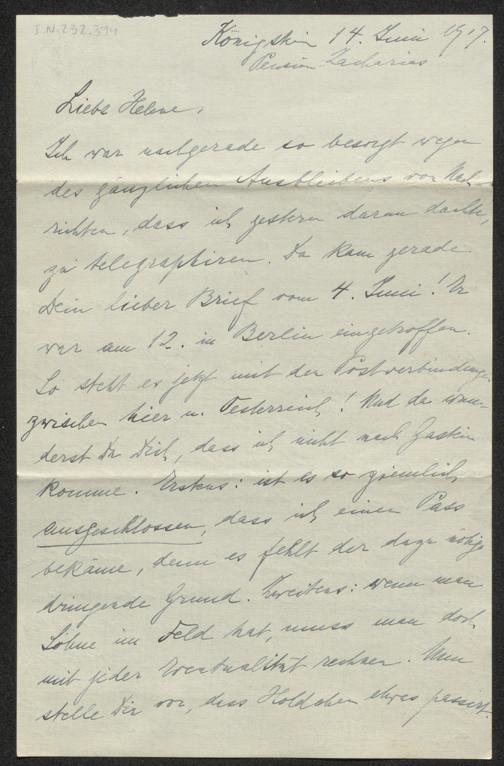 I.N. 232.394
Königstein 14. Juni 1917.
Pension Zacharias
Liebe Helene,
Ich war nachgerade so besorgt wegen
des gänzlichen Ausbleibens von Nach-
richten, dass ich gestern daran dachte,
zu telegraphiren. Da kam gerade
Dein lieber Brief vom 4. Juni! Er
war am 12. in Berlin eingetroffen.
So steht es jetzt mit den Postverbindungen
zwischen hier u. Oesterreich! Und da wun-
derst Du Dich, dass ich nicht nach Gastein
komme. Erstens: ist es so ziemlich
ausgeschlossen, dass ich einen Pass
bekäme, denn es fehlt der dazu nötige
dringende Grund. Zweitens: wenn man
Söhne im Feld hat, muss man doch
mit jeder Eventualität rechnen. Nun
stelle Dir vor, dass Holdchen etwas passirt.